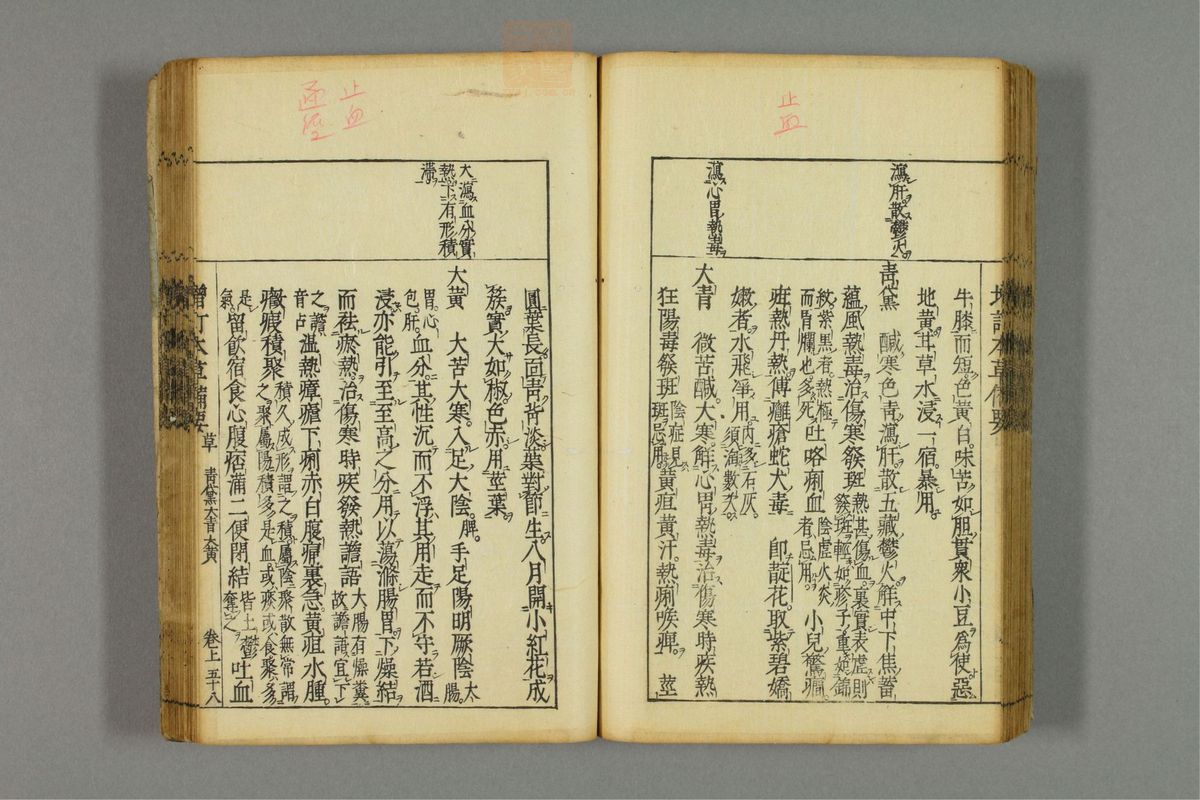 止血
瀉肝散鬱火
瀉心胃熱毒
牛膝而短色黃白味苦如胆貫衆小豆爲使惡
地黃甘草水浸一宿暴用
青黛 鹹寒色青瀉肝散五藏鬱火解中下焦蓄
蘊風熱毒治傷寒發斑熱甚傷血裏實表虛則發斑輕如疹子重如錦
紋紫黑者熱極而胃爛也多死吐咯痢血陰虛火炎者忌用小兒驚癇
疳熱丹熱傅癰瘡蛇犬毒 卽靛花取紫碧嬌
嫩者水飛淨用內多石灰須淘數次
大青 微苦鹹大寒解心胃熱毒治傷寒時疾熱
狂陽毒發斑陰症見斑忌用黃疸黃汗熱痢喉痺 莖
止血
通經
大瀉血分實
熱下有形積
滯
圓葉長面青背淡葉對節生八月開小紅花成
簇實大如椒色赤用莖葉
大黃 大苦大寒入足太陰脾手足陽明厥陰大腸
胃心包肝血分其性沉而不浮其用走而不守若酒
浸亦能引至至高之分用以蕩滌腸胃下燥結
而祛瘀熱治傷寒時疾發熱譫語大腸有燥糞故譫語宜下
之譫音占溫熱瘴瘧下痢赤白腹痛裏急黃疸水腫
癥瘕積聚積久成形謂之積屬陰聚散無常謂之聚屬陽積多是血或痰或食聚多
是氣留飲宿食心腹痞滿二便閉結皆土鬱奪之吐血
草 青黛大青大黃
卷上 五十八